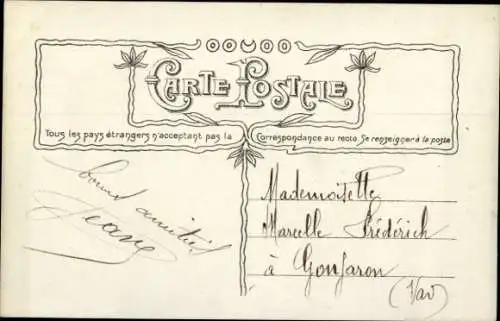 CARTE POSTALE
Tous les pays étrangers n'acceptant pas la Correspondance au recto, Se renseigner à la poste
bonne amitié
Jeanne
Mademoiselle
Marcelle Frédérich
à Gonfaron
(Var)